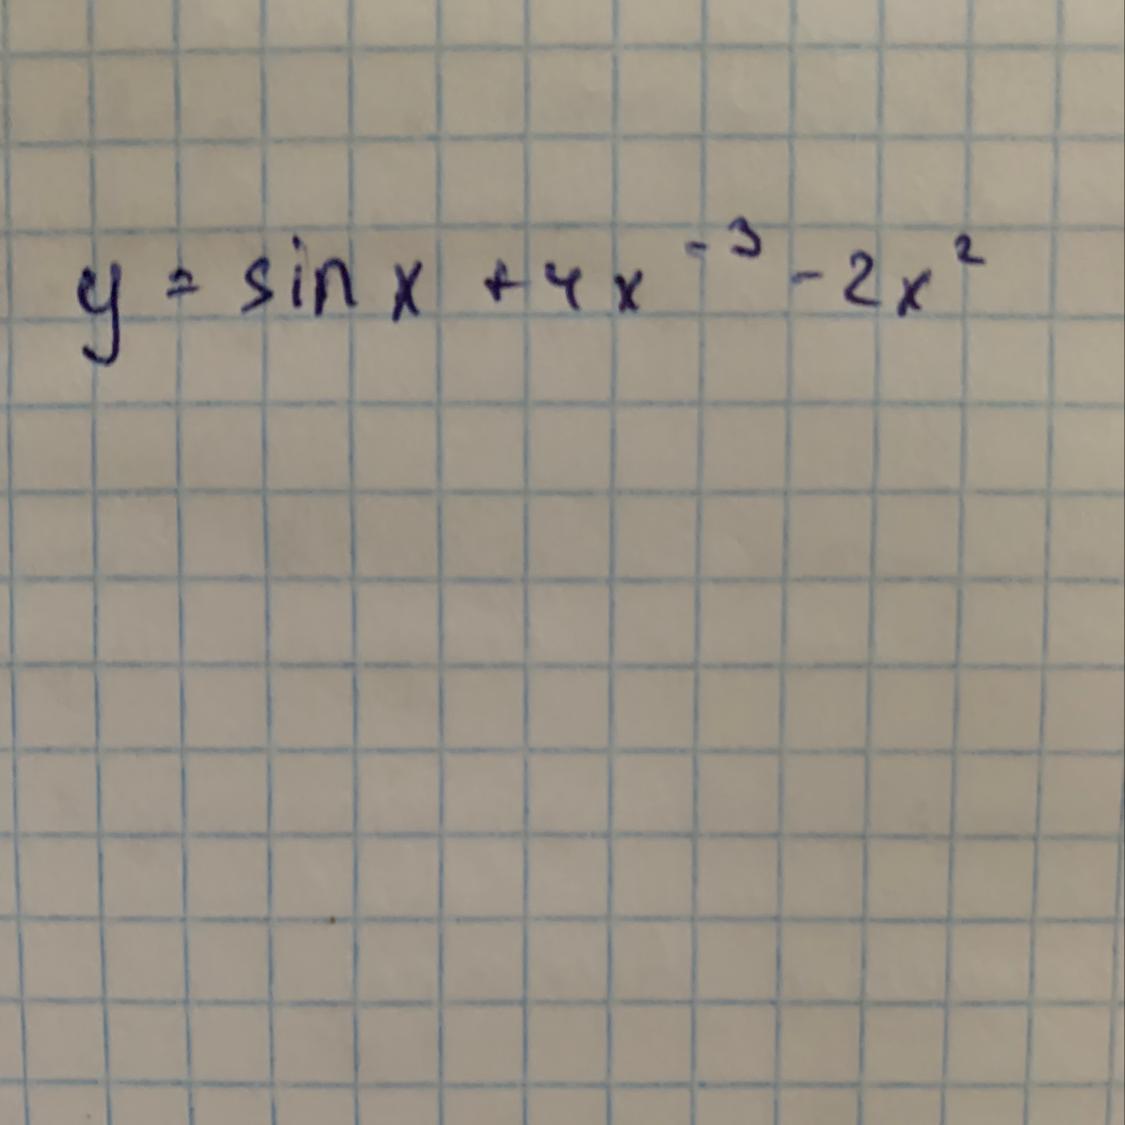 y = sin x + 4x⁻³ - 2x²